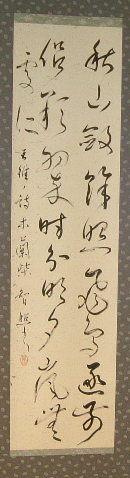 秋山斂餘照飛鳥逐前
侶彩翠時分明夕嵐無
處所
王維ノ詩木蘭柴